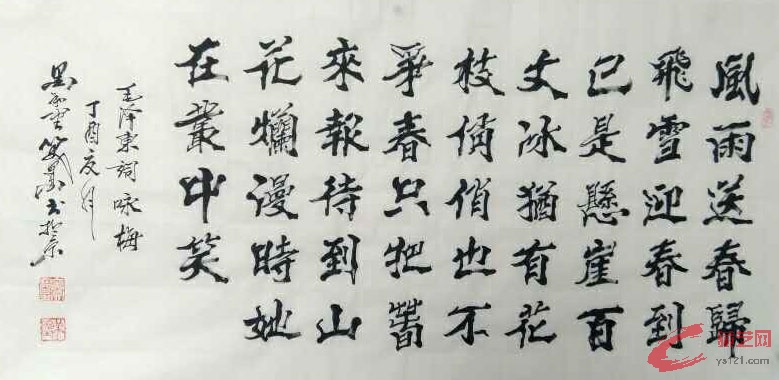 風雨送春歸
飛雪迎春到
已是懸崖百
丈冰猶有花
枝俏俏也不
爭春只把萅
來報待到山
花爛漫時她
在叢中笑
毛泽東詞咏梅
丁酉夏月
ys121.com